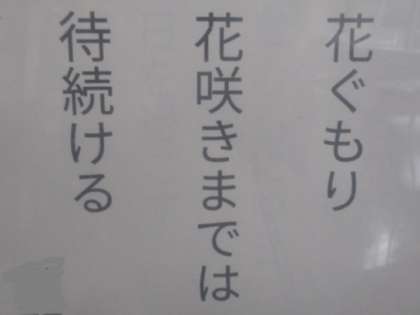 花ぐもり
花咲きまでは
待続ける